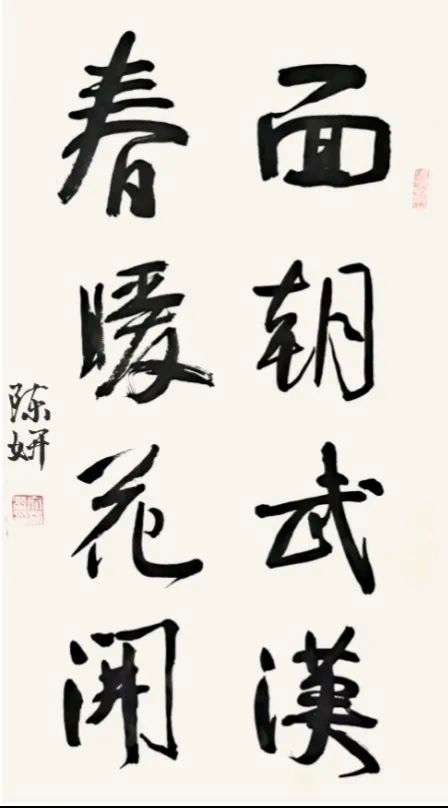 面朝武漢
春暖花開
陈妍